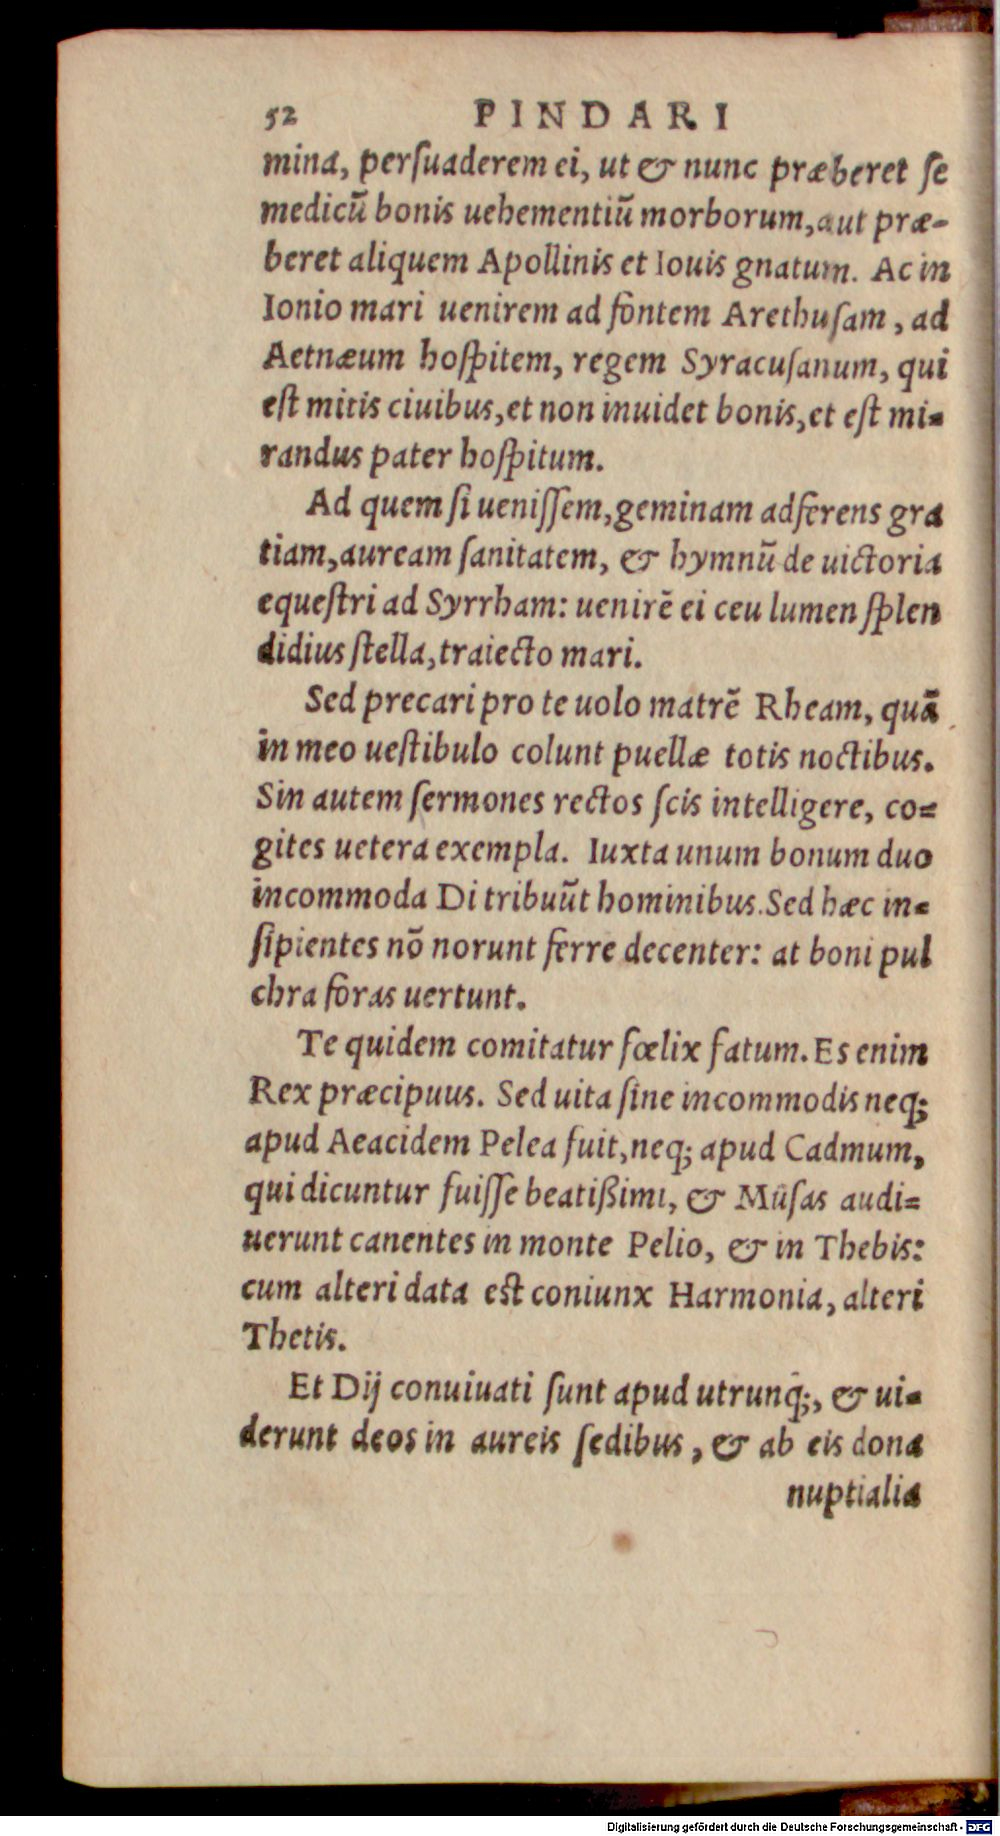 52 PINDARI
mina, perſuaderem ei, ut & nunc præberet ſe
medicũ bonis uehementiũ morborum, aut præ-
beret aliquem Apollinis et Iouis gnatum. Ac in
Ionio mari uenirem ad fontem Arethuſam, ad
Aetnæum hoſpitem, regem Syracuſanum, qui
eſt mitis ciuibus, et non inuidet bonis, et eſt mi-
randus pater hoſpitum.
Ad quem ſi ueniſſem, geminam adferens gra
tiam, auream ſanitatem, & hymnũ de uictoria
equeſtri ad Syrrham: uenirẽ ei ceu lumen ſplen
didius ſtella, traiecto mari.
Sed precari pro te uolo matrẽ Rheam, quã
in meo ueſtibulo colunt puellæ totis noctibus.
Sin autem ſermones rectos ſcis intelligere, co-
gites uetera exempla. Iuxta unum bonum duo
incommoda Di tribuũt hominibus. Sed hæc in-
ſipientes nõ norunt ferre decenter: at boni pul
chra foras uertunt.
Te quidem comitatur fœlix fatum. Es enim
Rex præcipuus. Sed uita ſine incommodis neq;
apud Aeacidem Pelea fuit, neq; apud Cadmum,
qui dicuntur fuiſſe beatißimi, & Muſas audi-
uerunt canentes in monte Pelio, & in Thebis:
cum alteri data eſt coniunx Harmonia, alteri
Thetis.
Et Dij conuiuati ſunt apud utrunq;, & ui-
derunt deos in aureis ſedibus, & ab eis dona
nuptialia
Digitalisierung gefördert durch die Deutsche Forschungsgemeinschaft - DFG